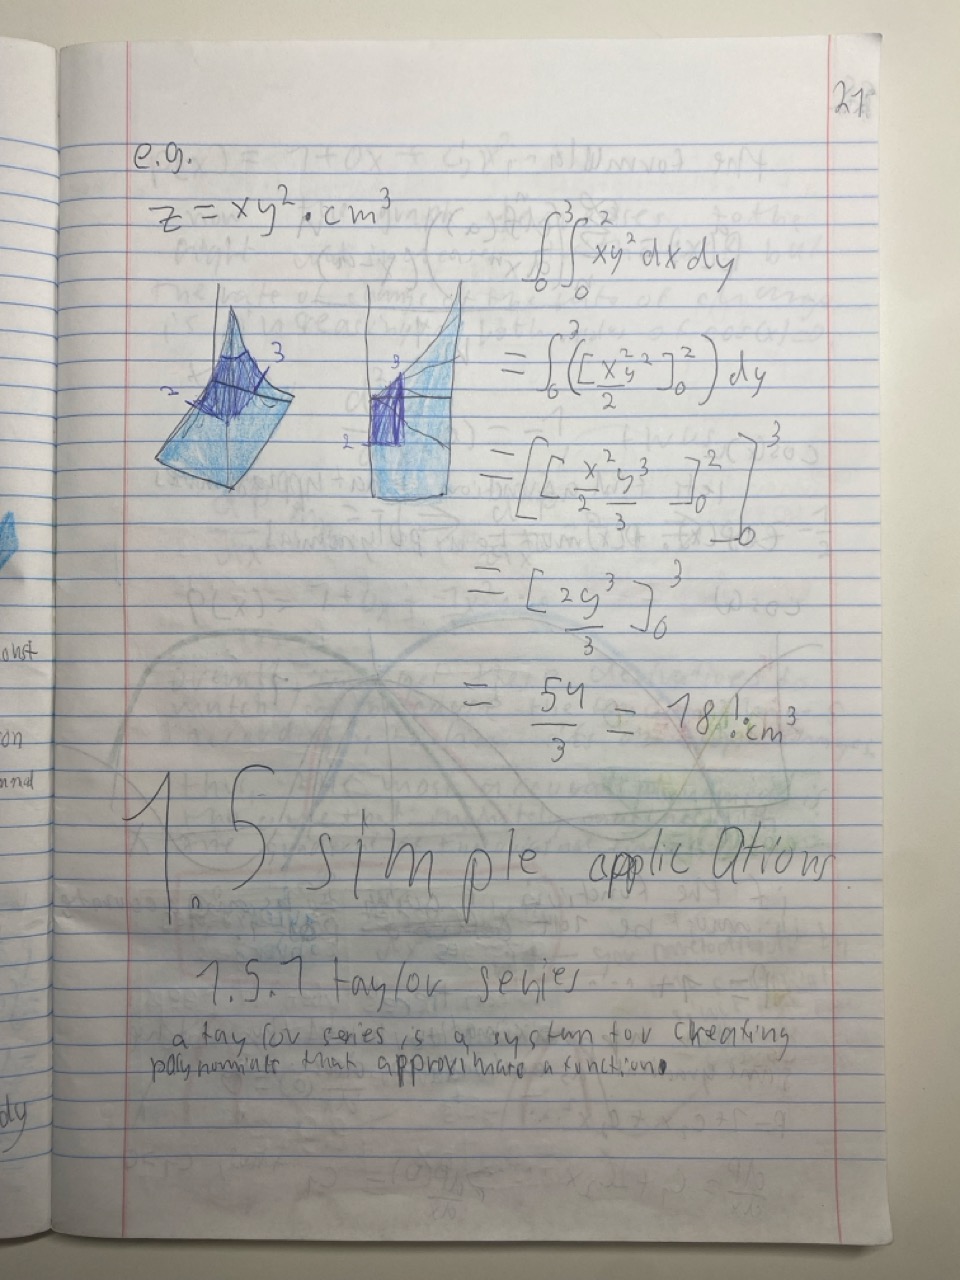 21
e.g.
z = xy² · cm³
∫₀³∫₀² xy² dx dy
3
2
3
2
= ∫₀³([x²y²/2]₀²) dy
= [[x²/2 y³/3]₀²]₀³
= [2y³/3]₀³
= 54/3 = 18!·cm³
1.5 simple applications
1.5.1 taylor series
a taylor series is a system for creating
polynomials that approximate a function.
onst
on
dy